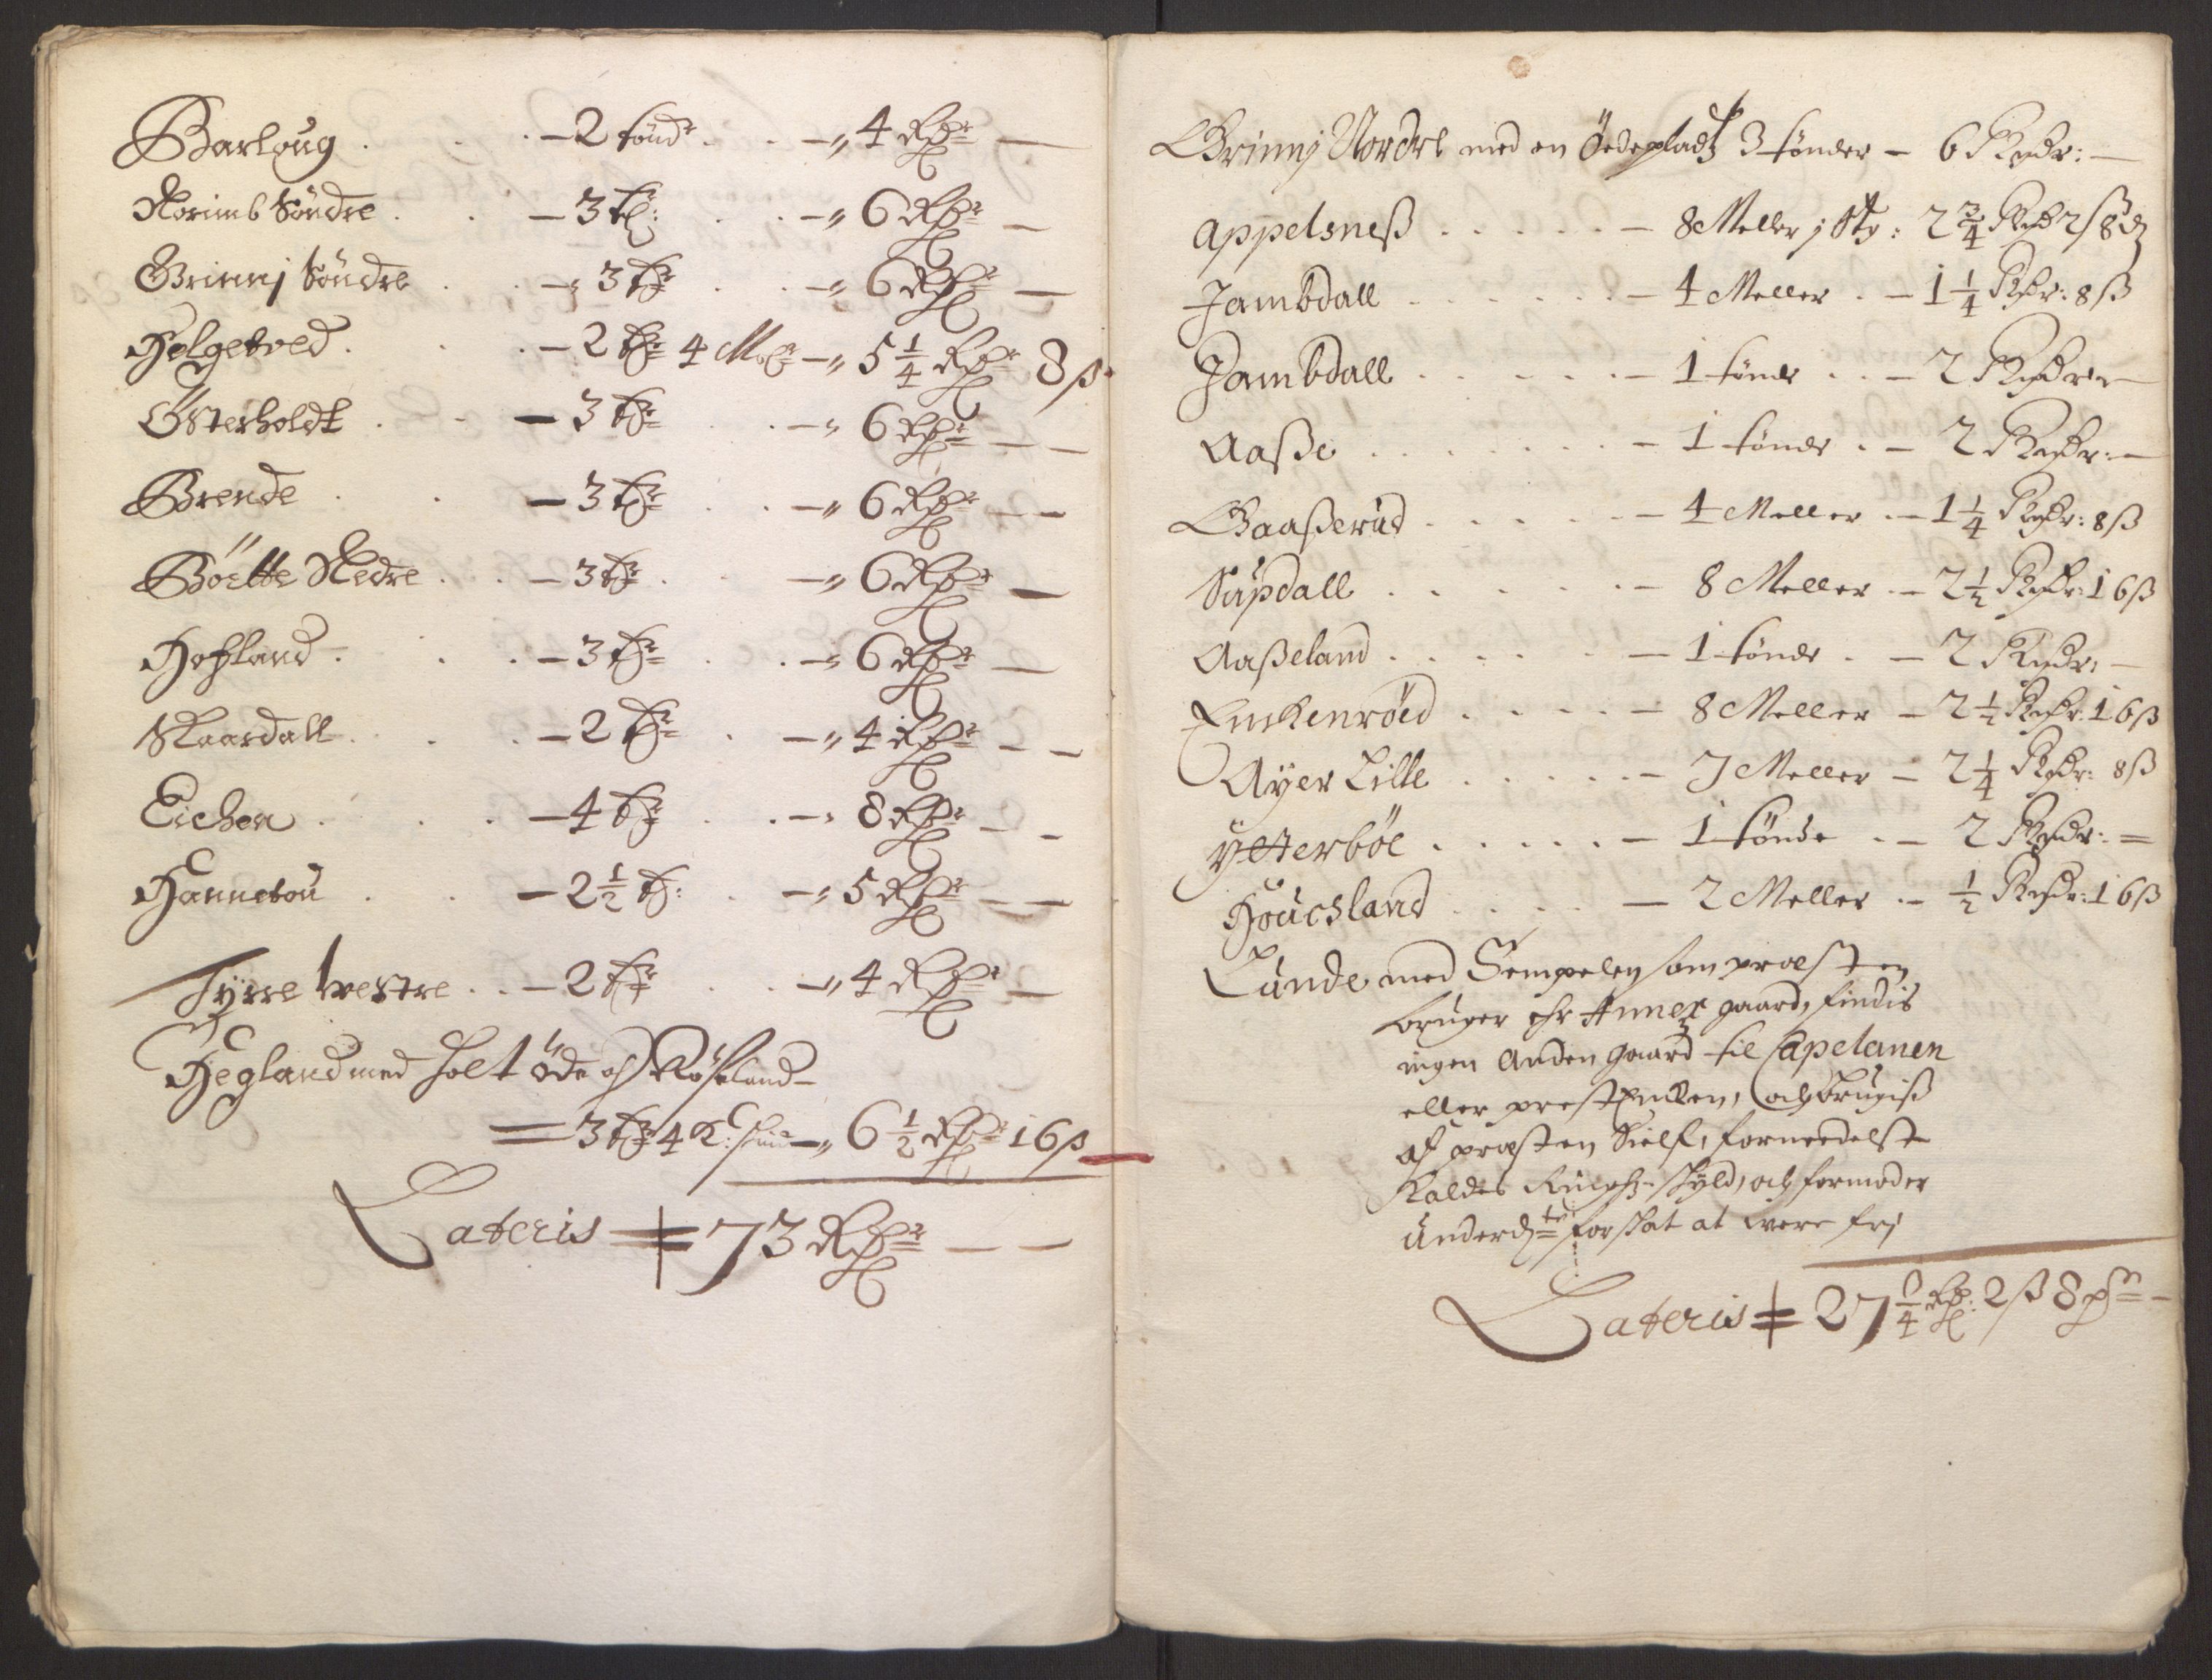 Barloug . . . — 2 tønd{r} . . — 4 Rdr —
Norimb Söndre . . — 3 tr: . . — 6 Rdr —
Grinnj Söndre . . — 3 tr . . — 6 Rdr —
Helgetved . . — 2 tr 4 Mel — 5 1/4 Rdr 8 ß
Österholdt . . — 3 tr . . — 6 Rdr —
Brende . . — 3 tr . . — 6 Rdr —
Böelte Nedre . . — 3 tr . . — 6 Rdr —
Hofland . . — 3 tr . . — 6 Rdr —
Skaardall . . — 2 tr . . — 4 Rdr —
Eichen . . — 4 tr . . — 8 Rdr —
Hannetou . . — 2 1/2 tr: . — 5 Rdr —
Tyrre westre . . — 2 tr . . — 4 Rdr —
Hegland med Holt öde och Röseland —
= 3 tr 4 K: — 6 1/2 Rdr 16 ß
Lateris = 73 Rdr — —
Grinnj Nordre med en Ödepladtz 3 tønder — 6 Rixdr: —
Appelsneß . . . . — 8 Meller j : 2 3/4 Rixd 2 ß 8 d
Jambdall . . . . — 4 Meller . — 1 1/4 Rixdr: 8 ß
Jambdall . . . . — 1 tønde . . — 2 Rixdr —
Aaße . . . . — 1 tønde . — 2 Rixdr: —
Gaaßerud . . . . — 4 Meller . — 1 1/4 Rixdr: 8 ß
Supdall . . . . — 8 Meller . — 2 1/2 Rixdr: 16 ß
Aaßeland . . . . — 1 tønde . — 2 Rixdr: —
Enckenröed . . . . — 8 Meller — 2 1/2 Rixdr: 16 ß
Ayer Lille . . . . — 7 Meller — 2 1/4 Rixdr: 8 ß
Ytterböe . . . . — 1 tønde . — 2 Rixdr: =
Houcsland . . . . — 2 Meller . — 1/2 Rixdr: 16 ß
Lunde med Sempelen som præsten
bruger ehr Annex gaard, findis
ingen anden gaard til Capelanen
eller prestEncken, och brugiß
af præsten Sielf, formedelst
Kaldes Ringhe skyld, och formoder
underd: for skat at were frj
Lateris = 27 1/4 Rdr: 2 ß 8 —